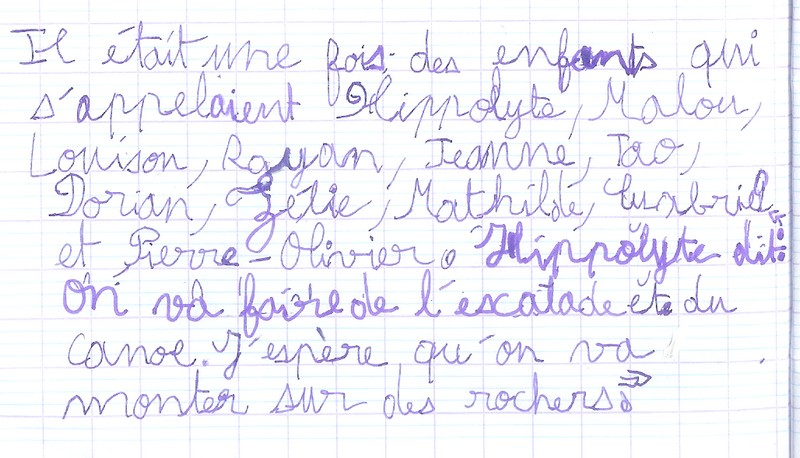 Il était une fois des enfants qui
s'appelaient Hippolyte, Malou,
Louison, Rayan, Jeanne, Tao,
Dorian, Zélie, Mathilde,
et Pierre-Olivier. Hippolyte dit:
"On va faire de l'escalade et du
canoe. J'espère qu'on va
monter sur des rochers."